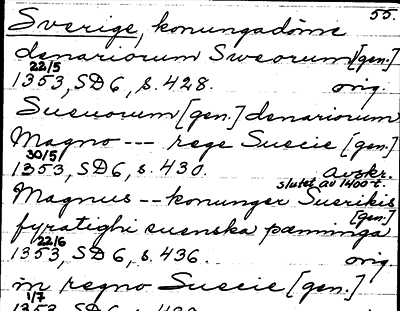 55.
Sverige, konungadöme
denariorum Sweorum [gen.]
22/5
1353, SD 6, s. 428. orig.
Sueuorum [gen.] denariorum
Magno --- rege Suecie [gen.]
30/5
1353, SD 6, s. 430. avskr.
slutet av 1400-t.
Magnus -- konunger Suerikis
[gen.]
fyratighi suenska pænninga
22/6
1353, SD 6, s. 436. orig.
in regno Suecie [gen.]
1/7
1353, SD 6,